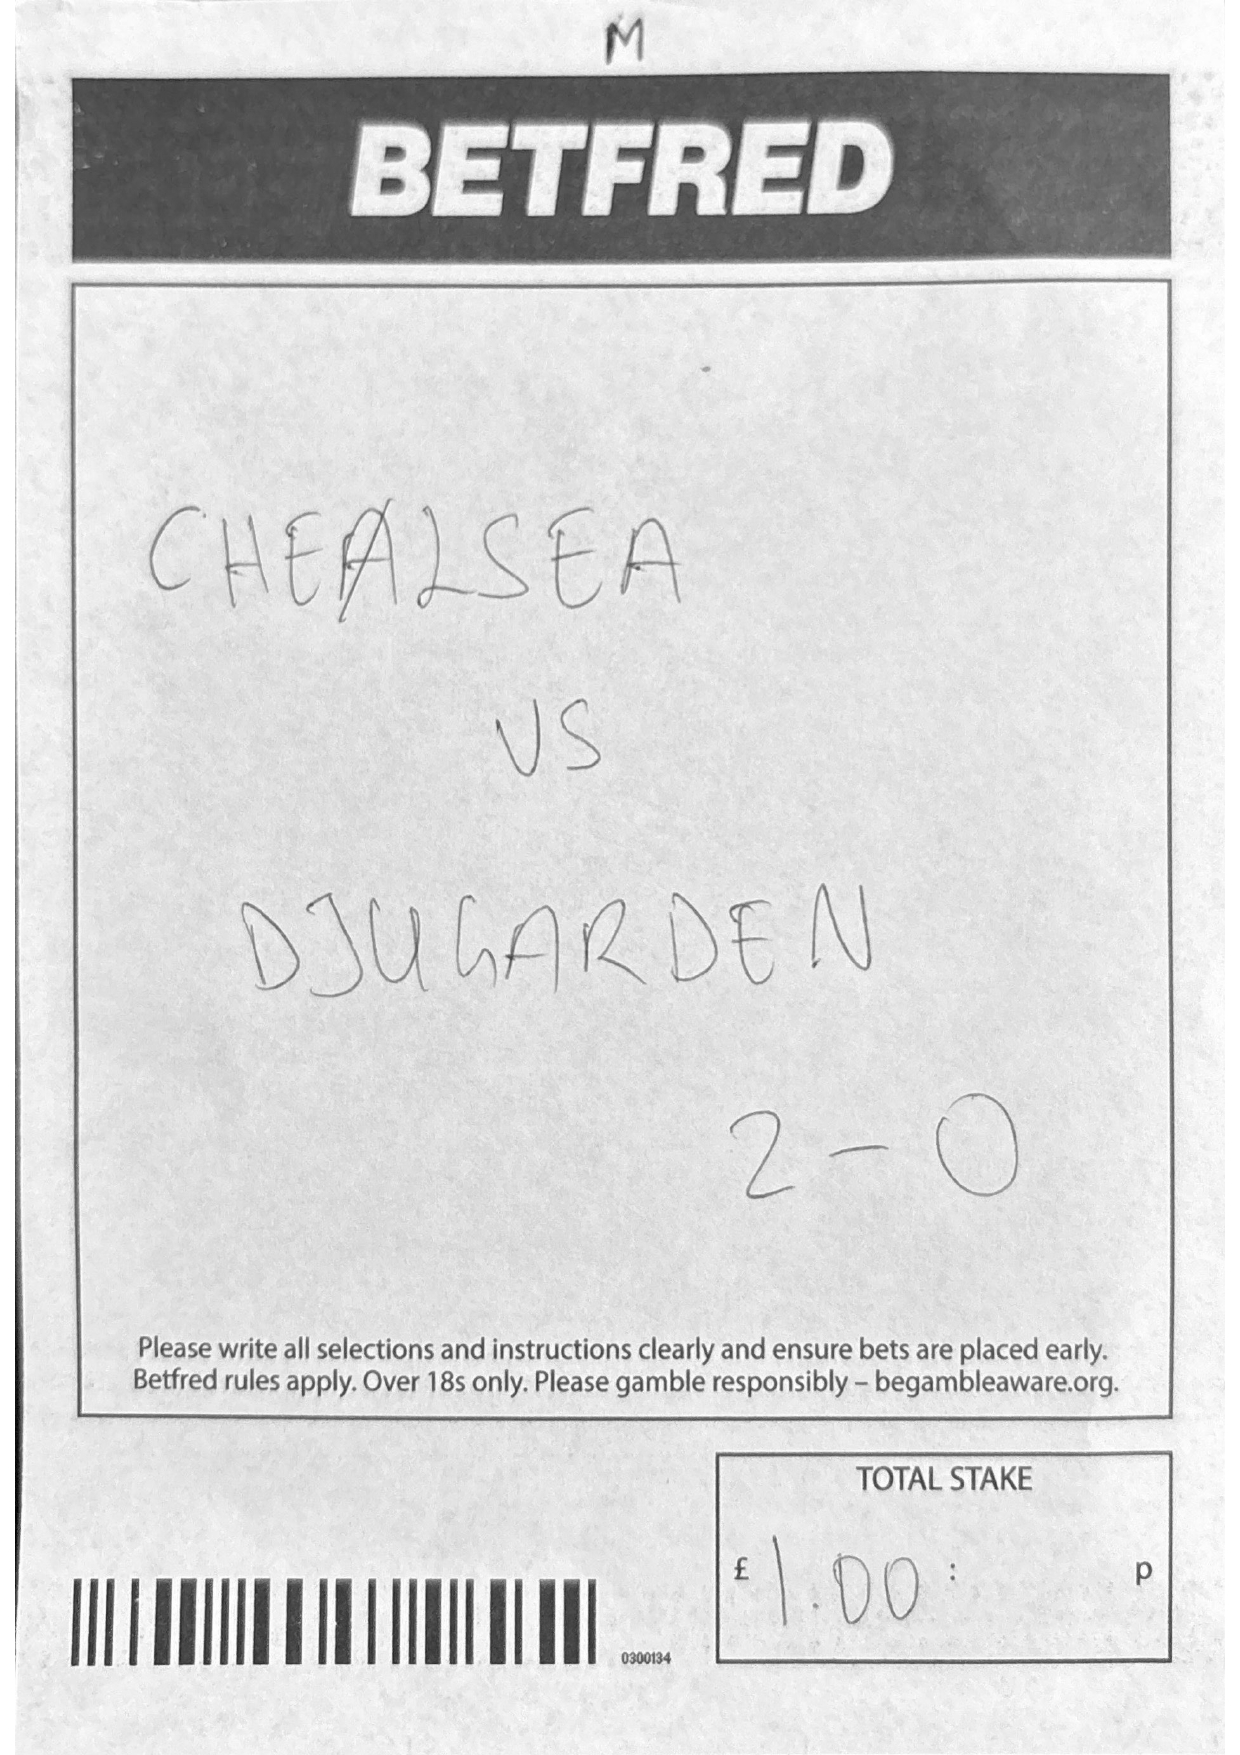 M
BETFRED
CHEALSEA
VS
DJUGARDEN
2-0
Please write all selections and instructions clearly and ensure bets are placed early.
Betfred rules apply. Over 18s only. Please gamble responsibly – begambleaware.org.
TOTAL STAKE
£ 1.00 : p
0300134